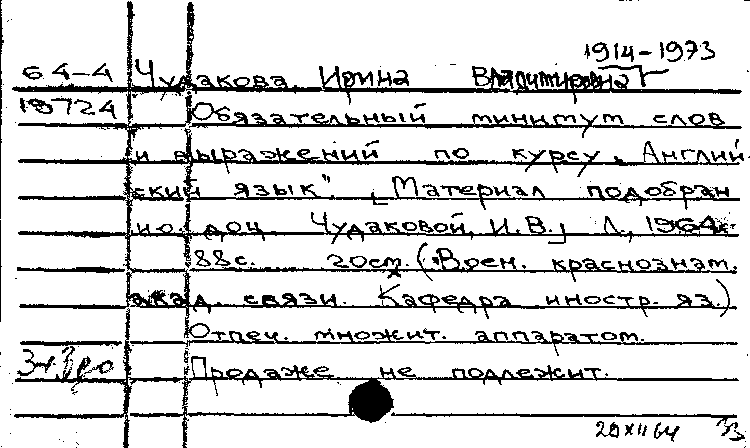 1914-1973
64-4 Чудакова, Ирина Владимировна
19724 Обязательный минимум слов
и выражений по курсу "Англий-
ский язык". [Материал подобран
и.о. доц. Чудаковой, И.В.] Л., 1964.
88с. 20см. (Воен. краснознам.
акад. связи. Кафедра иностр. яз.)
Отпеч. множит. аппаратом.
Продаже не подлежит.
20 XII 64 33